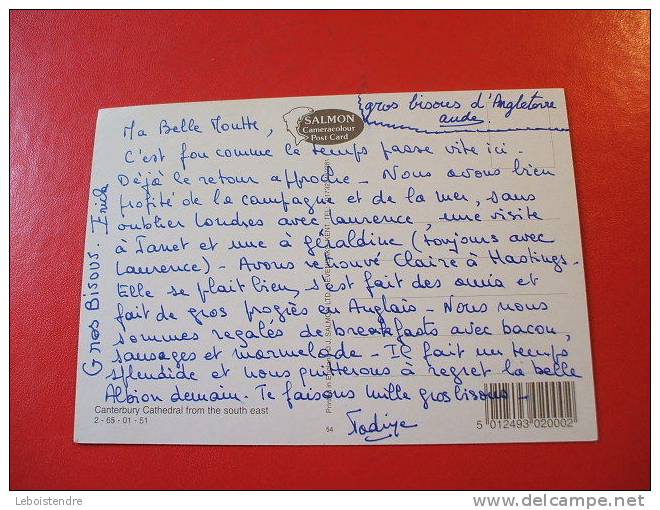 gros bisous d'Angleterre
aude.
SALMON
Cameracolour
Post Card
Ma Belle Moutte,
C'est fou comme le temps passe vite ici.
Déjà le retour approche - Nous avons bien
profité de la campagne et de la mer, sans
oublier Londres avec Laurence, une visite
à Janet et une à géraldine (toujours avec
Laurence) - Avons retrouvé Claire à Hastings -
Elle se plait bien, s'est fait des amis et
fait de gros progrès en Anglais - Nous nous
sommes regalés de breakfasts avec bacon,
sausages et marmelade - Il fait un temps
splendide et nous quitterons à regret la belle
Albion demain. Te faisons mille gros bisous -
Gros Bisous.
Canterbury Cathedral from the south east
2 - 65 - 01 - 51
54
5 012493 020002
Leboistendre
www.delcampe.net